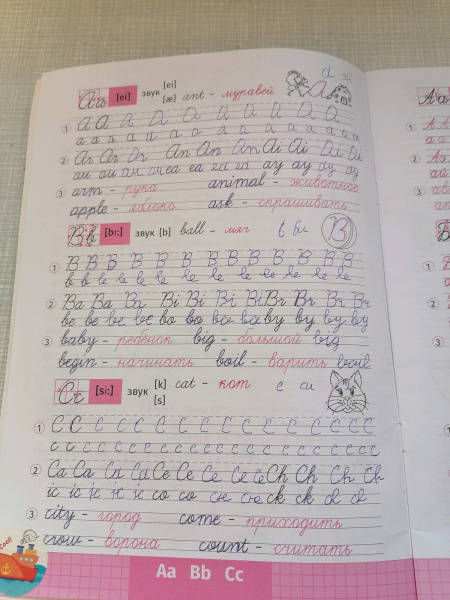 Aa [ei] звук [ei]
[æ] ant - муравей
1 A A A A A A A A A
a a a a a a a a a a a a a
2 Ar Ar Ar An An An Ai Ai Ai Ai
au au au au ea ea ea ea ay ay ay ay
3 arm - рука animal - животное
apple - яблоко ask - спрашивать
Bb [bi:] звук [b] ball - мяч B
1 B B B B B B B B B B B B B
b b b b b b b b b b b
2 Ba Ba Ba Bi Bi Bi Bi Br Br Br Br
be be be be bo bo bo bo by by by by
3 baby - ребёнок big - большой big
begin - начинать boil - варить boil
Cc [si:] звук [k] cat - кот
[s]
1 C C C C C C C C C C C C C C C
c c c c c c c c c c c c c c c c c c
2 Ca Ca Ca Ca Ce Ce Ce Ce Ce Ch Ch Ch Ch
ic ic ic ic ic co co co co ck ck ck ck
3 city - город come - приходить
crow - ворона count - считать
Aa Bb Cc